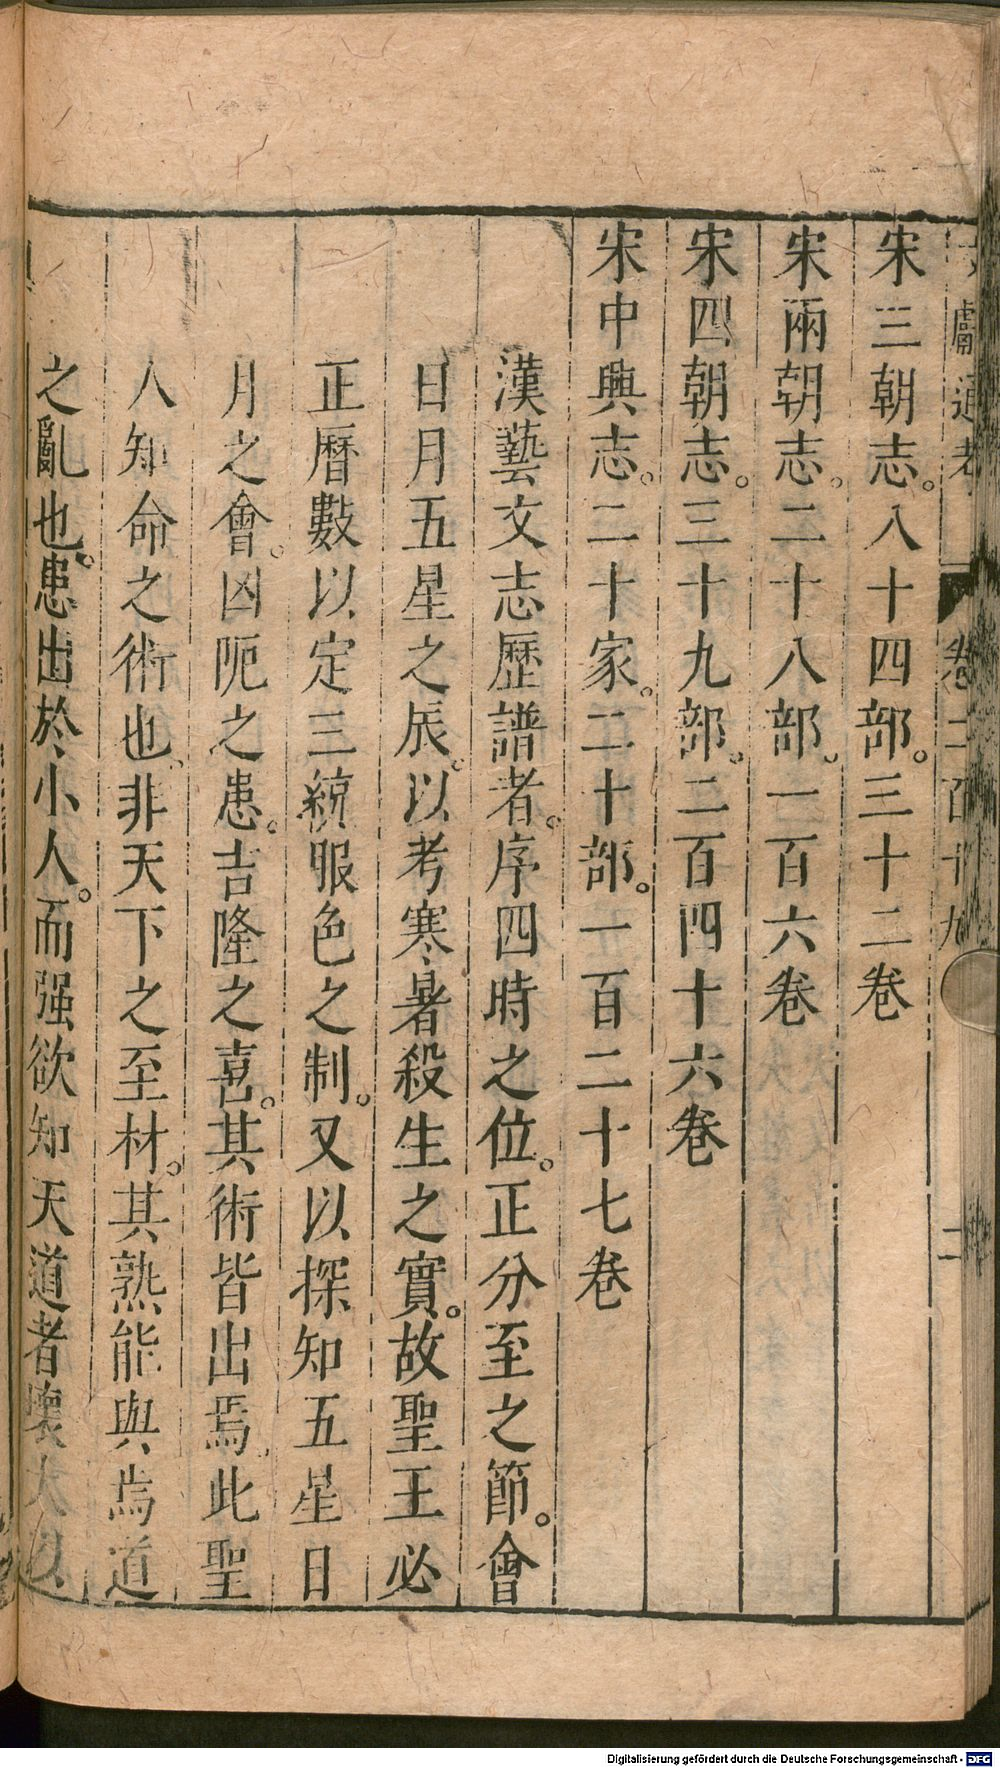 獻通考 卷二百十九 二
宋三朝志。八十四部。三十二卷
宋兩朝志。二十八部。一百六卷
宋四朝志。三十九部。二百四十六卷
宋中興志。二十家。二十部。一百二十七卷
漢藝文志歷譜者。序四時之位。正分至之節。會
日月五星之辰。以考寒暑殺生之實。故聖王必
正曆數以定三統服色之制。又以探知五星日
月之會。凶阨之患。吉隆之喜。其術皆出焉此聖
人知命之術也、非天下之至材。其熟能與焉道
之亂也。患出於小人。而强欲知天道者壞大以
Digitalisierung gefördert durch die Deutsche Forschungsgemeinschaft - DFG